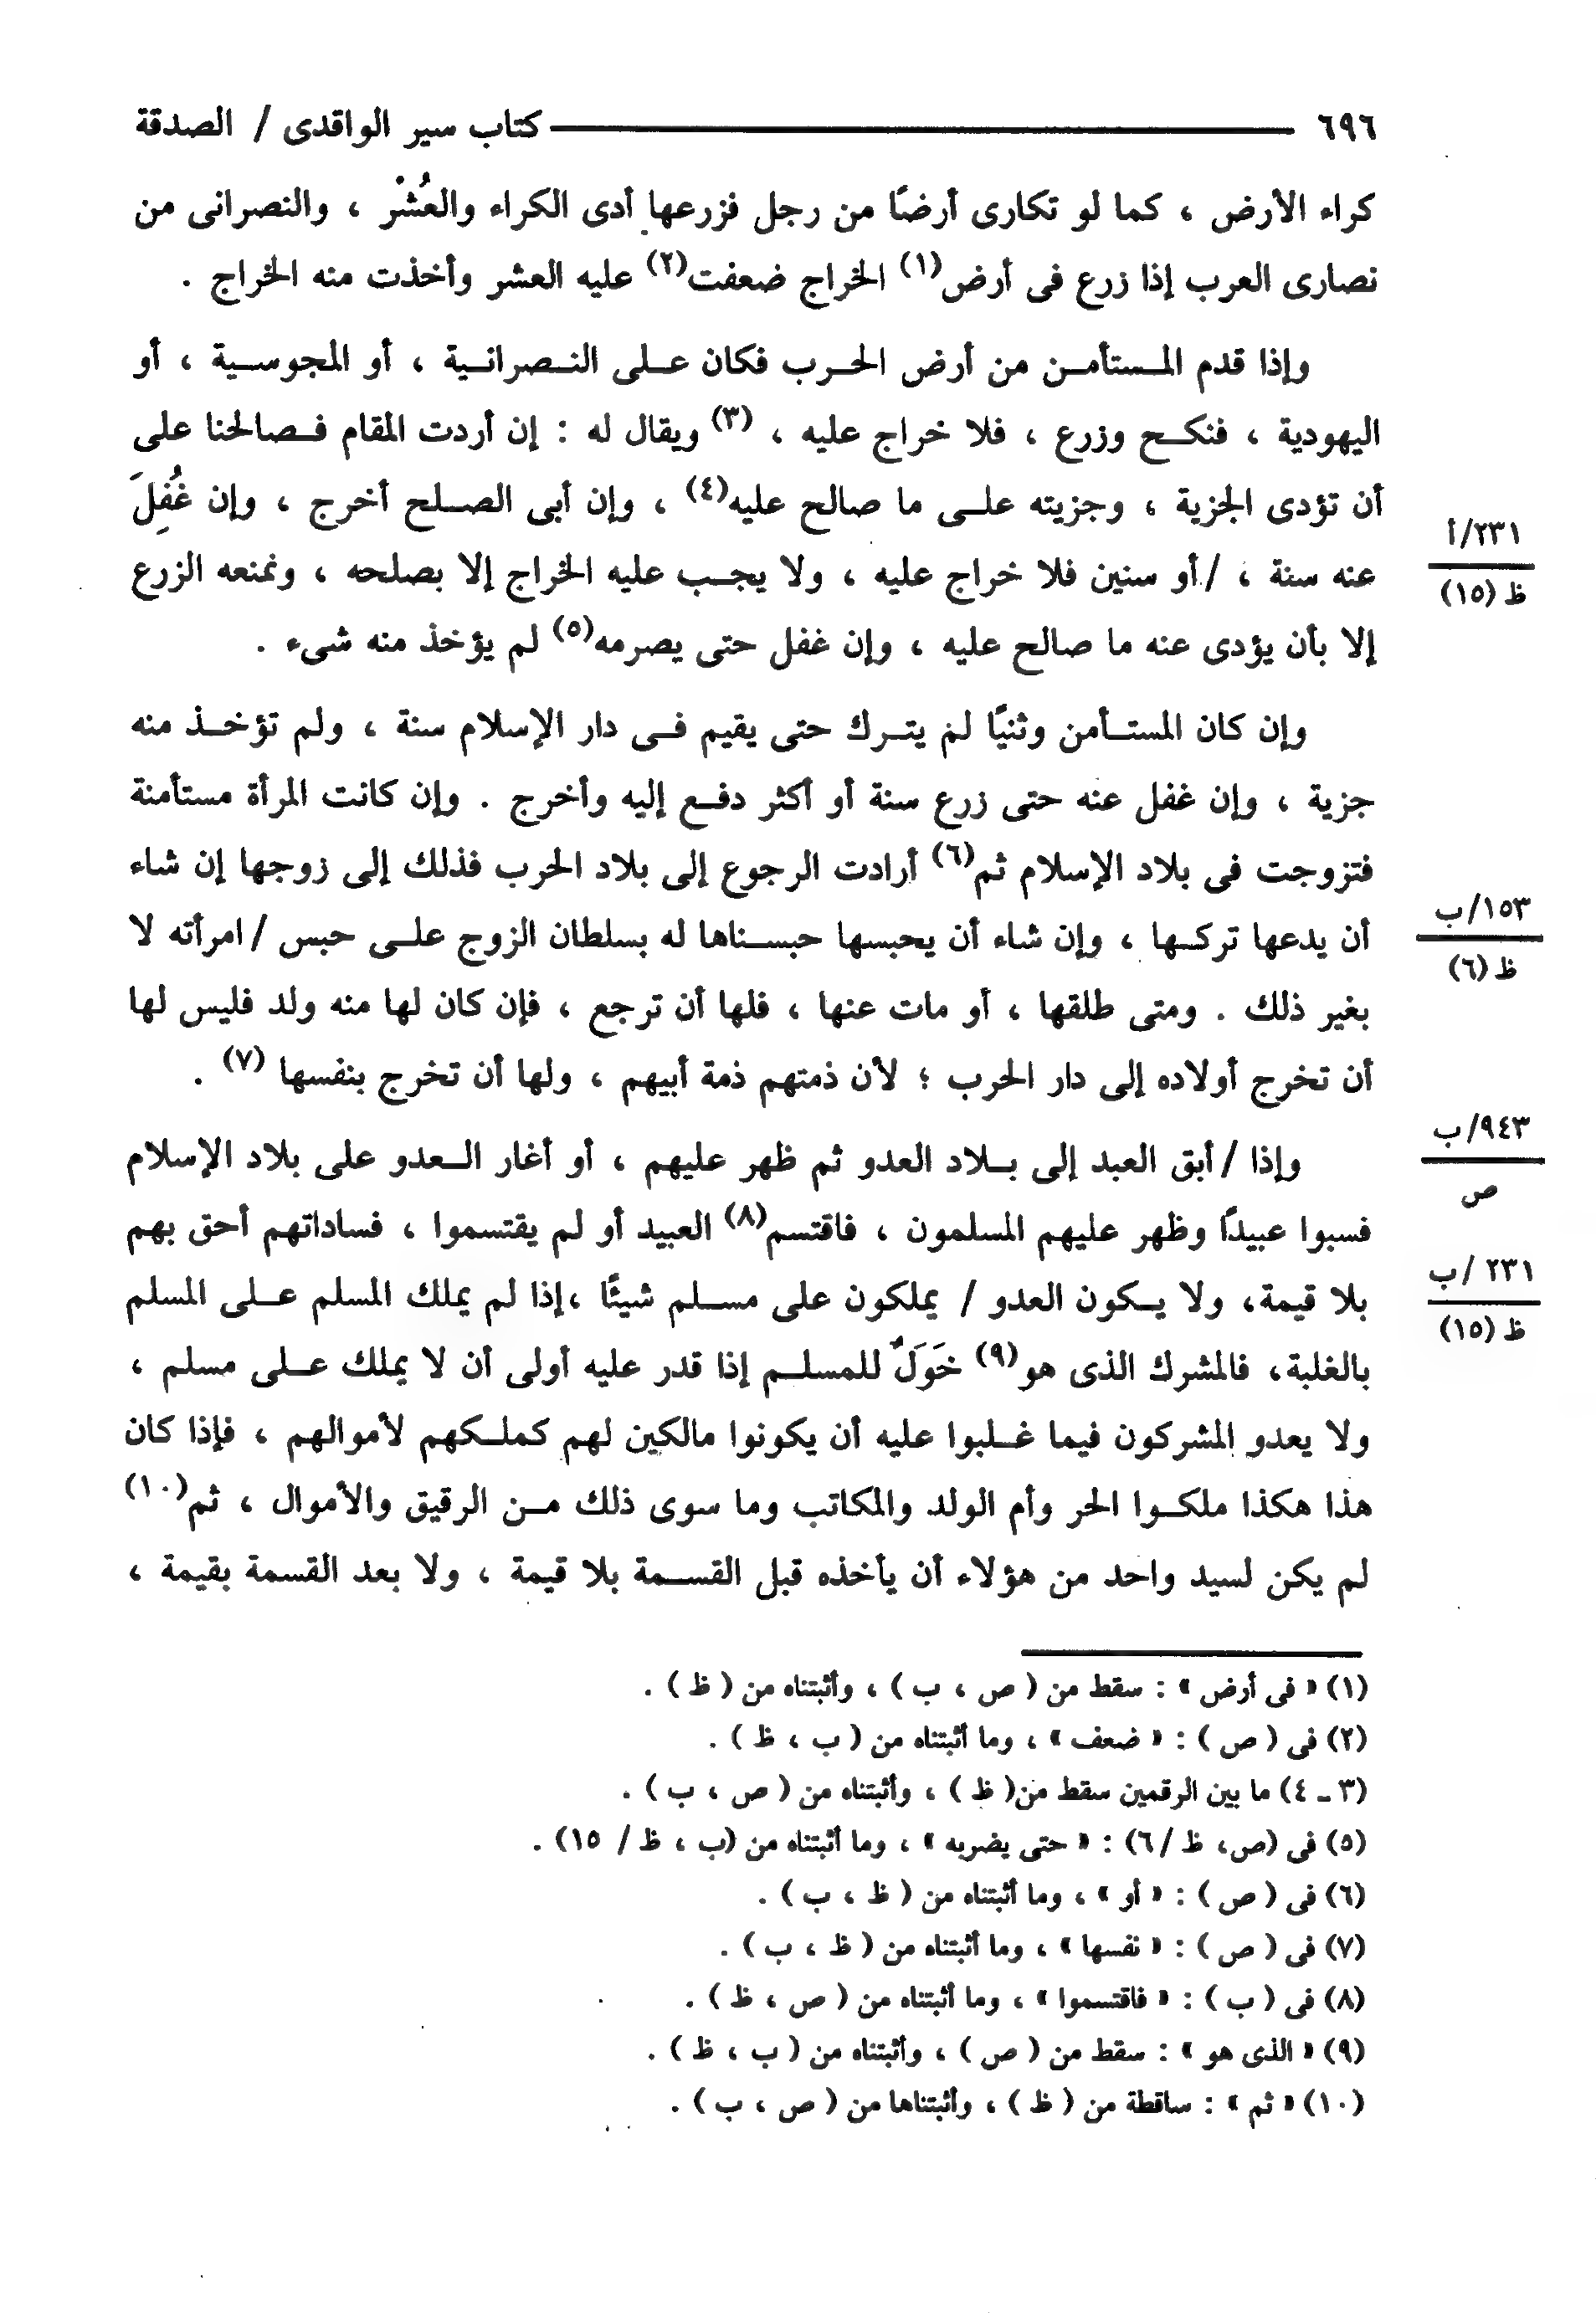 ٦٩٦ كتاب سير الواقدى / الصدقة
كراء الأرض ، كما لو تكارى أرضًا من رجل فزرعها أدى الكراء والعُشْر ، والنصرانى من
نصارى العرب إذا زرع فى أرض(١) الخراج ضعفت(٢) عليه العشر وأخذت منه الخراج .
وإذا قدم المستأمن من أرض الحرب فكان على النصرانية ، أو المجوسية ، أو
اليهودية ، فنكح وزرع ، فلا خراج عليه ، (٣) ويقال له : إن أردت المقام فصالحنا على
أن تؤدى الجزية ، وجزيته على ما صالح عليه(٤) ، وإن أبى الصلح أخرج ، وإن غُفِلَ
٢٣١/أ
ظ (١٥)
عنه سنة ، / أو سنين فلا خراج عليه ، ولا يجب عليه الخراج إلا بصلحه ، ونمنعه الزرع
إلا بأن يؤدى عنه ما صالح عليه ، وإن غفل حتى يصرمه(٥) لم يؤخذ منه شىء .
وإن كان المستأمن وثنيًا لم يترك حتى يقيم فى دار الإسلام سنة ، ولم تؤخذ منه
جزية ، وإن غفل عنه حتى زرع سنة أو أكثر دفع إليه وأخرج . وإن كانت المرأة مستأمنة
فتزوجت فى بلاد الإسلام ثم(٦) أرادت الرجوع إلى بلاد الحرب فذلك إلى زوجها إن شاء
١٥٣/ب
ظ (٦)
أن يدعها تركها ، وإن شاء أن يحبسها حبسناها له بسلطان الزوج على حبس / امرأته لا
بغير ذلك . ومتى طلقها ، أو مات عنها ، فلها أن ترجع ، فإن كان لها منه ولد فليس لها
أن تخرج أولاده إلى دار الحرب ؛ لأن ذمتهم ذمة أبيهم ، ولها أن تخرج بنفسها (٧) .
٩٤٣/ب
ص
وإذا / أبق العبد إلى بلاد العدو ثم ظهر عليهم ، أو أغار العدو على بلاد الإسلام
فسبوا عبيدًا وظهر عليهم المسلمون ، فاقتسم(٨) العبيد أو لم يقتسموا ، فساداتهم أحق بهم
٢٣١ /ب
ظ (١٥)
بلا قيمة، ولا يكون العدو / يملكون على مسلم شيئًا ،إذا لم يملك المسلم على المسلم
بالغلبة، فالمشرك الذى هو(٩) خَوَلٌ للمسلم إذا قدر عليه أولى أن لا يملك على مسلم ،
ولا يعدو المشركون فيما غلبوا عليه أن يكونوا مالكين لهم كملكهم لأموالهم ، فإذا كان
هذا هكذا ملكوا الحر وأم الولد والمكاتب وما سوى ذلك من الرقيق والأموال ، ثم(١٠)
لم يكن لسيد واحد من هؤلاء أن يأخذه قبل القسمة بلا قيمة ، ولا بعد القسمة بقيمة ،
(١) « فى أرض » : سقط من ( ص ، ب ) ، وأثبتناه من ( ظ ) .
(٢) فى ( ص ) : « ضعف » ، وما أثبتناه من ( ب ، ظ ) .
(٣ ـ ٤) ما بين الرقمين سقط من( ظ ) ، وأثبتناه من ( ص ، ب ) .
(٥) فى (ص، ظ /٦) : « حتى يضربه » ، وما أثبتناه من (ب ، ظ / ١٥) .
(٦) فى ( ص ) : « أو » ، وما أثبتناه من ( ظ ، ب ) .
(٧) فى ( ص ) : « نفسها » ، وما أثبتناه من ( ظ ، ب ) .
(٨) فى ( ب ) : « فاقتسموا » ، وما أثبتناه من ( ص ، ظ ) .
(٩) « الذى هو » : سقط من ( ص ) ، وأثبتناه من ( ب ، ظ ) .
(١٠) « ثم » : ساقطة من ( ظ ) ، وأثبتناها من ( ص ، ب ) .